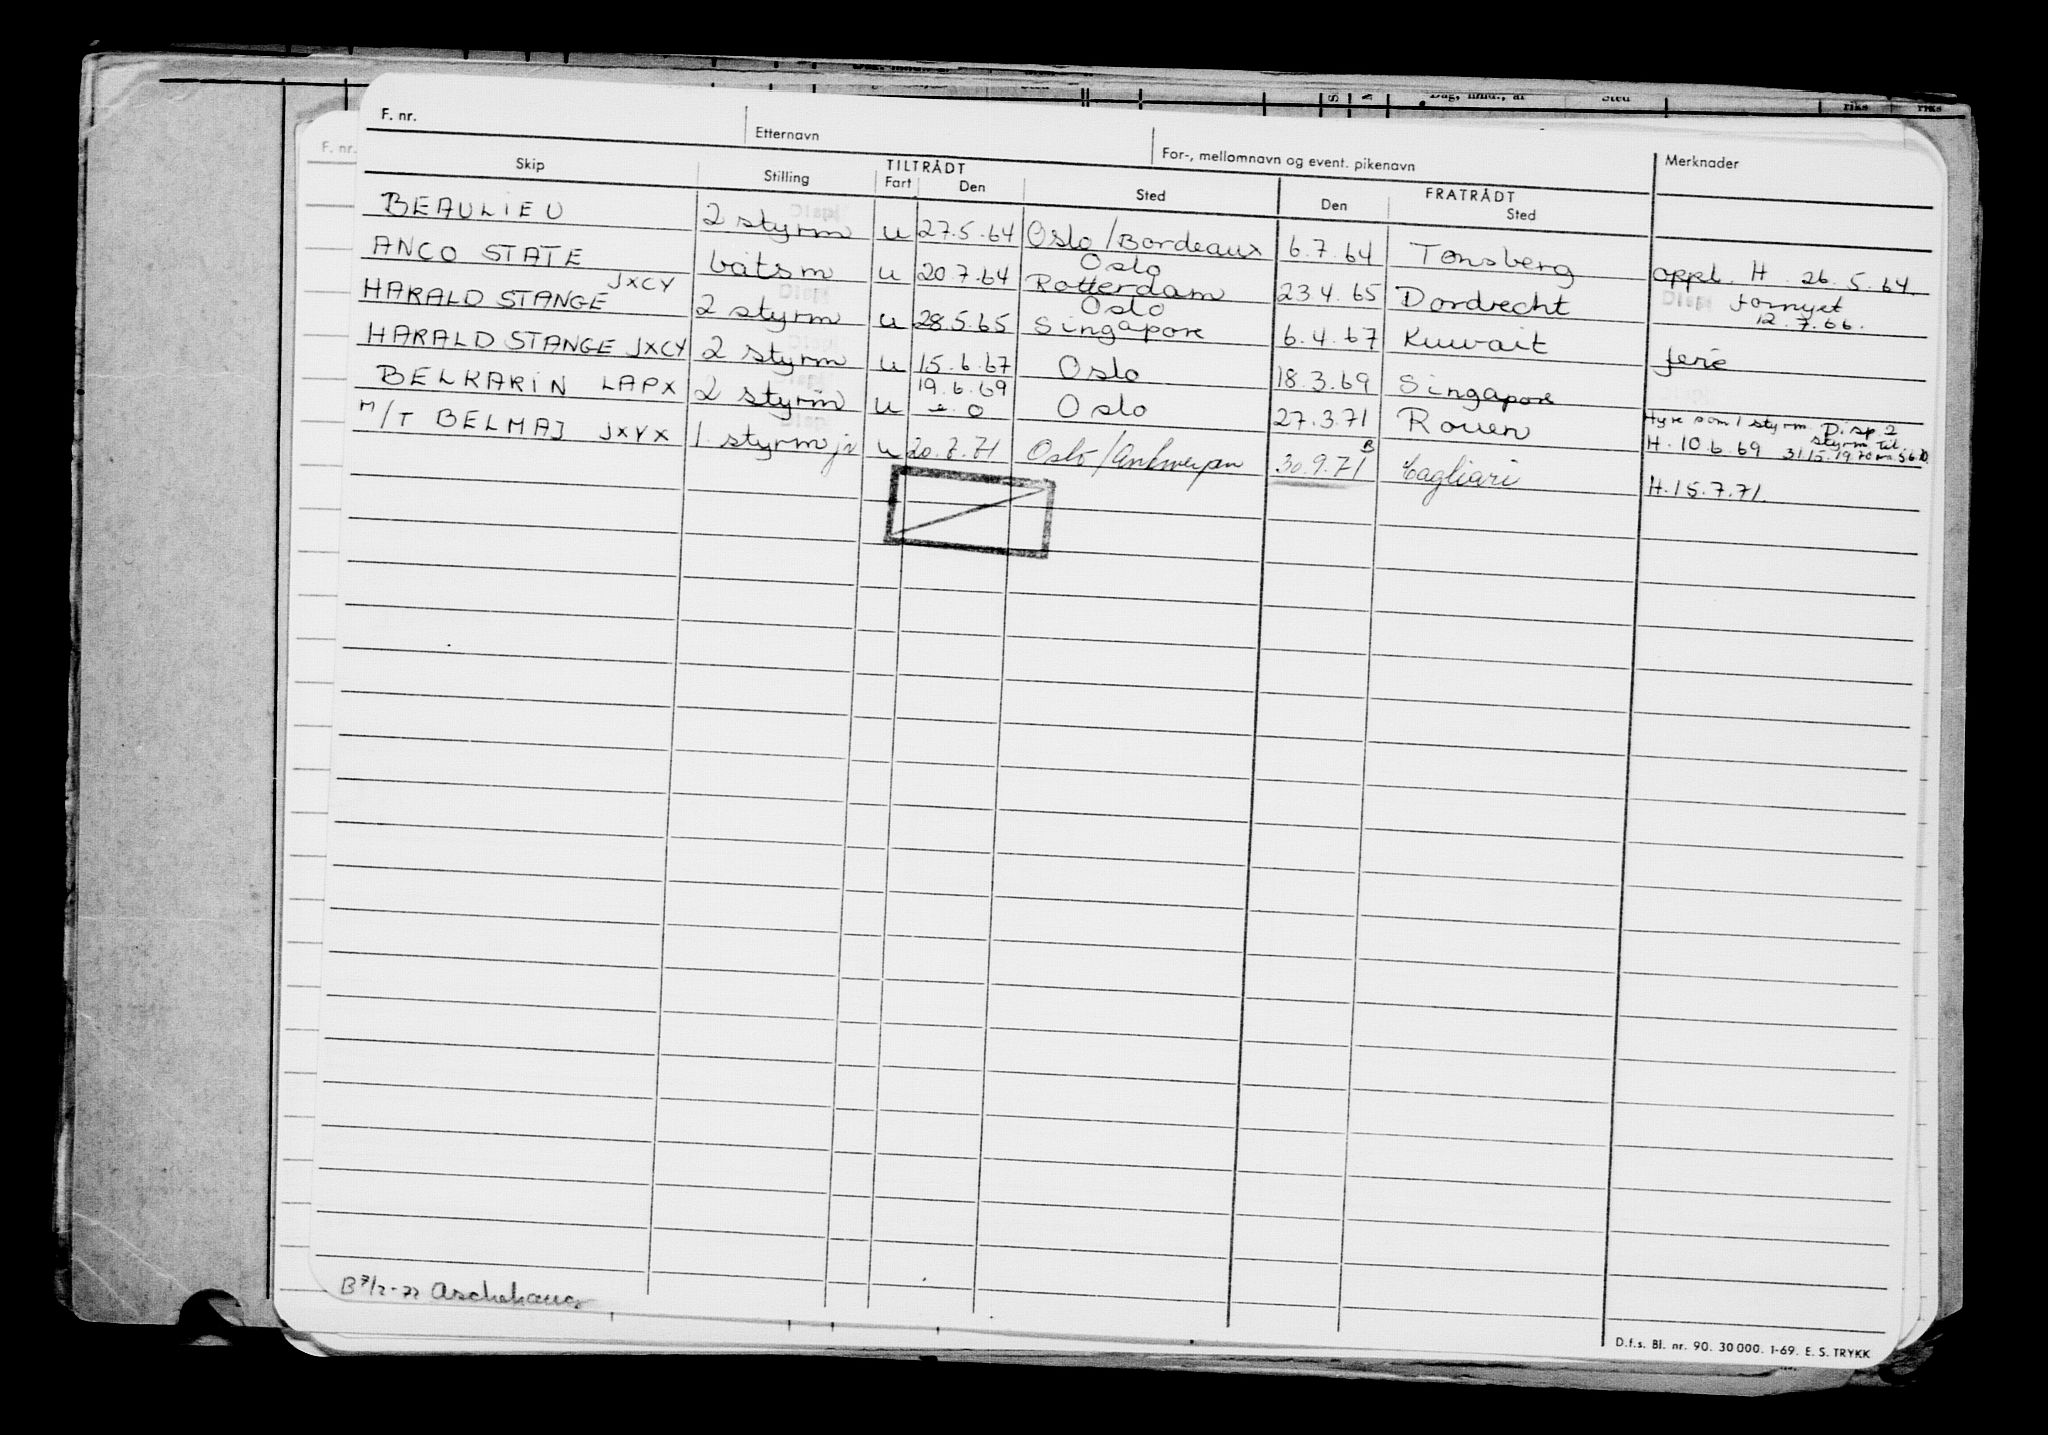 F. nr. Etternavn For-, mellomnavn og event. pikenavn Merknader
Skip Stilling TILTRÅDT Fart Den Sted FRATRÅDT Den Sted
BEAULIEU 2 styrm u 27.5.64 Oslo/Bordeaux 6.7.64 Tønsberg appl. H 26.5.64.
ANCO STATE båtsm u 20.7.64 Oslo Rotterdam 23.4.65 Dordrecht fornyet 12.7.66.
HARALD STANGE JXCY 2 styrm u 28.5.65 Oslo Singapore 6.4.67 Kuwait ferie
HARALD STANGE JXCY 2 styrm u 15.6.67 Oslo 18.3.69 Singapore
BELKARIN LAPX 2 styrm u 19.6.69 Oslo 27.3.71 Rouen Hyre som 1 styrm. Disp 2 styrm til 31/5.1970
H. 10.6.69
M/T BELMAJ JXVX 1 styrm jr u 20.7.71 Oslo/Antwerpen 30.9.71 B Cagliari H.15.7.71.
B 7/2-72 Aschehoug
D.f.s. Bl. nr. 90. 30 000. 1-69. E. S. TRYKK
F. nr.
Dag, mnd., år Sted
riks riks